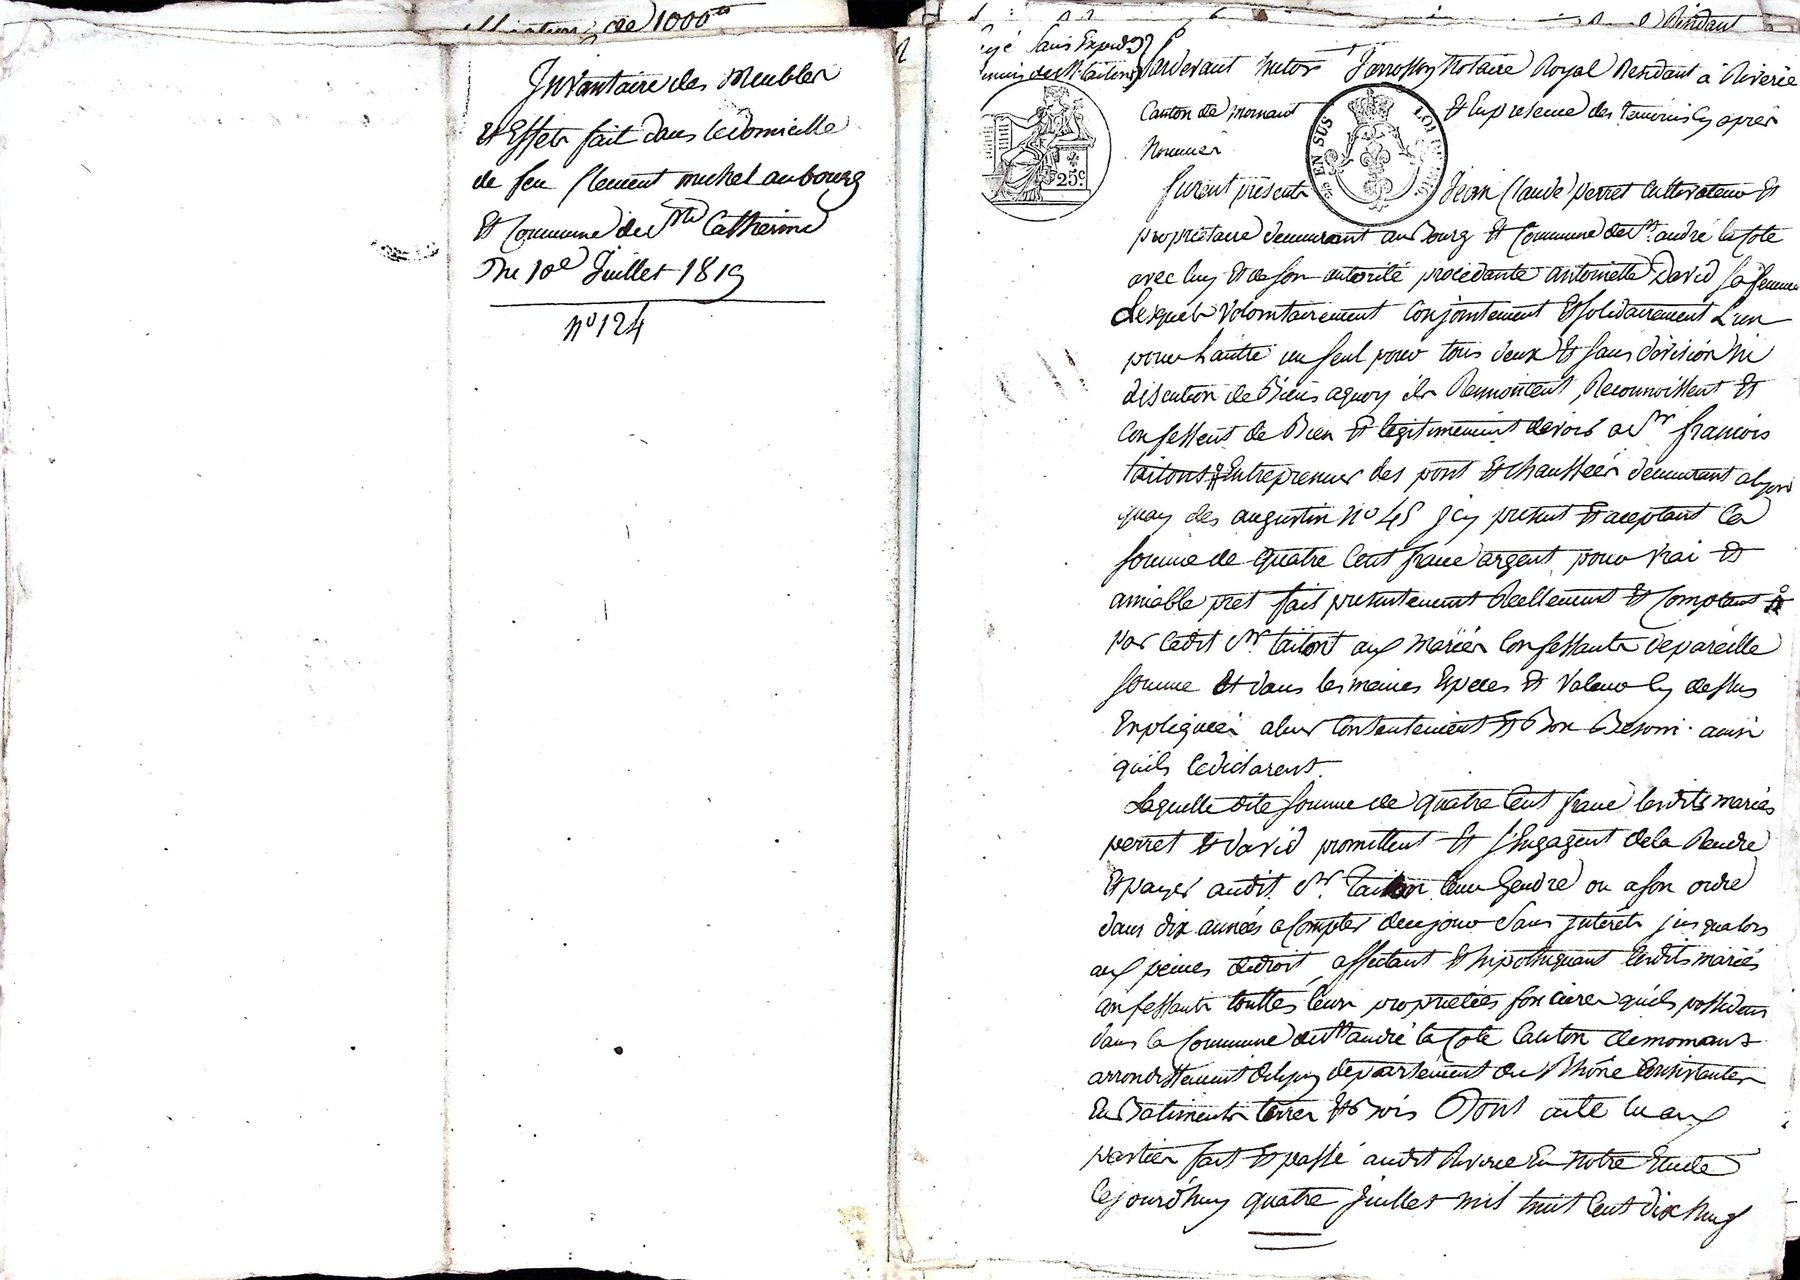 de 1000
Invantaire des Meubles
Et Effets fait dans le domicille
de feu Clement michel au bourg
Et Commune de Ste Catherine
Du 10e Juillet 1819
no 124
Résidant
Sans Expedon
Pardevant Victor Jarrosson Notaire Royal Residant à Riverie
Canton de mornant Et En presence des temoins Cy après
Nommés
25c
EN SUS LOI
furent présents Jean Claude perret Cultivateur Et
propriétaire demeurant au Bourg Et Commune de St. andré la Cote
avec luy Et de son autorité procédante antoinette David sa femme
Lesquels volontairement Conjointement Et solidairement L'un
pour L'autre un seul pour tous deux Et sans division Ni
discution de Biens aquoy ils Renoncent, Reconnoissent Et
Confessent de Bien Et légitimement devoir a Sr. francois
taitont Entreprenur des pont Et chaussées demeurant a lyon
quay des augustin no 45 Jcy présent Et aceptant La
somme de quatre Cent franc argent pour vrai Et
amiable pret fait presentement Réellement Et Comptant
par Ledit Sr. taitont aux mariés Confessants de pareille
somme Et dans les memes Especes Et valeur Cy dessus
Expliquées a leur Contentement Et Bon Besoin. ainsi
quils le déclarent.
Laquelle dite somme de quatre Cent franc lesdits mariés
perret Et david promettent Et s'Engagent de la Rendre
Et payer audit Sr. taiton leur Gendre ou a son ordre
dans dix années a Compter de ce jour sans Jnterêts jusqualors
aux peines de droit affectant Et hipothéquant lesdits mariés
Confessants touttes leurs propriétées foncieres quils possedent
dans la Commune de St andré la Cote Canton de mornant
arrondissement de lyon département du Rhône Consistantes
En Batiments terres Et Bois Dont acte lu aux
parties fait Et passé audit Riverie En Notre Etude
Cejourd'huy quatre Juillet mil huit Cent dix Neuf